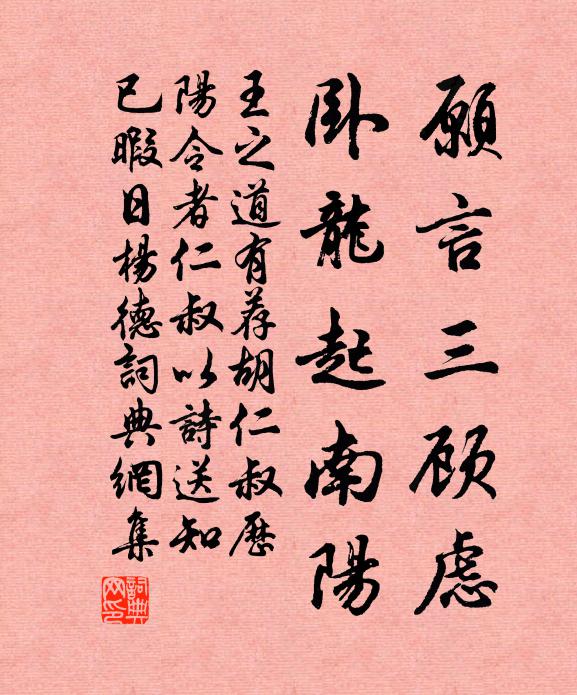 願言三顾慮
卧龍起南陽
王之道有荐胡仁叔歷
陽令者仁叔以詩送知
已暇日楊德詞典網集
詞典
网印